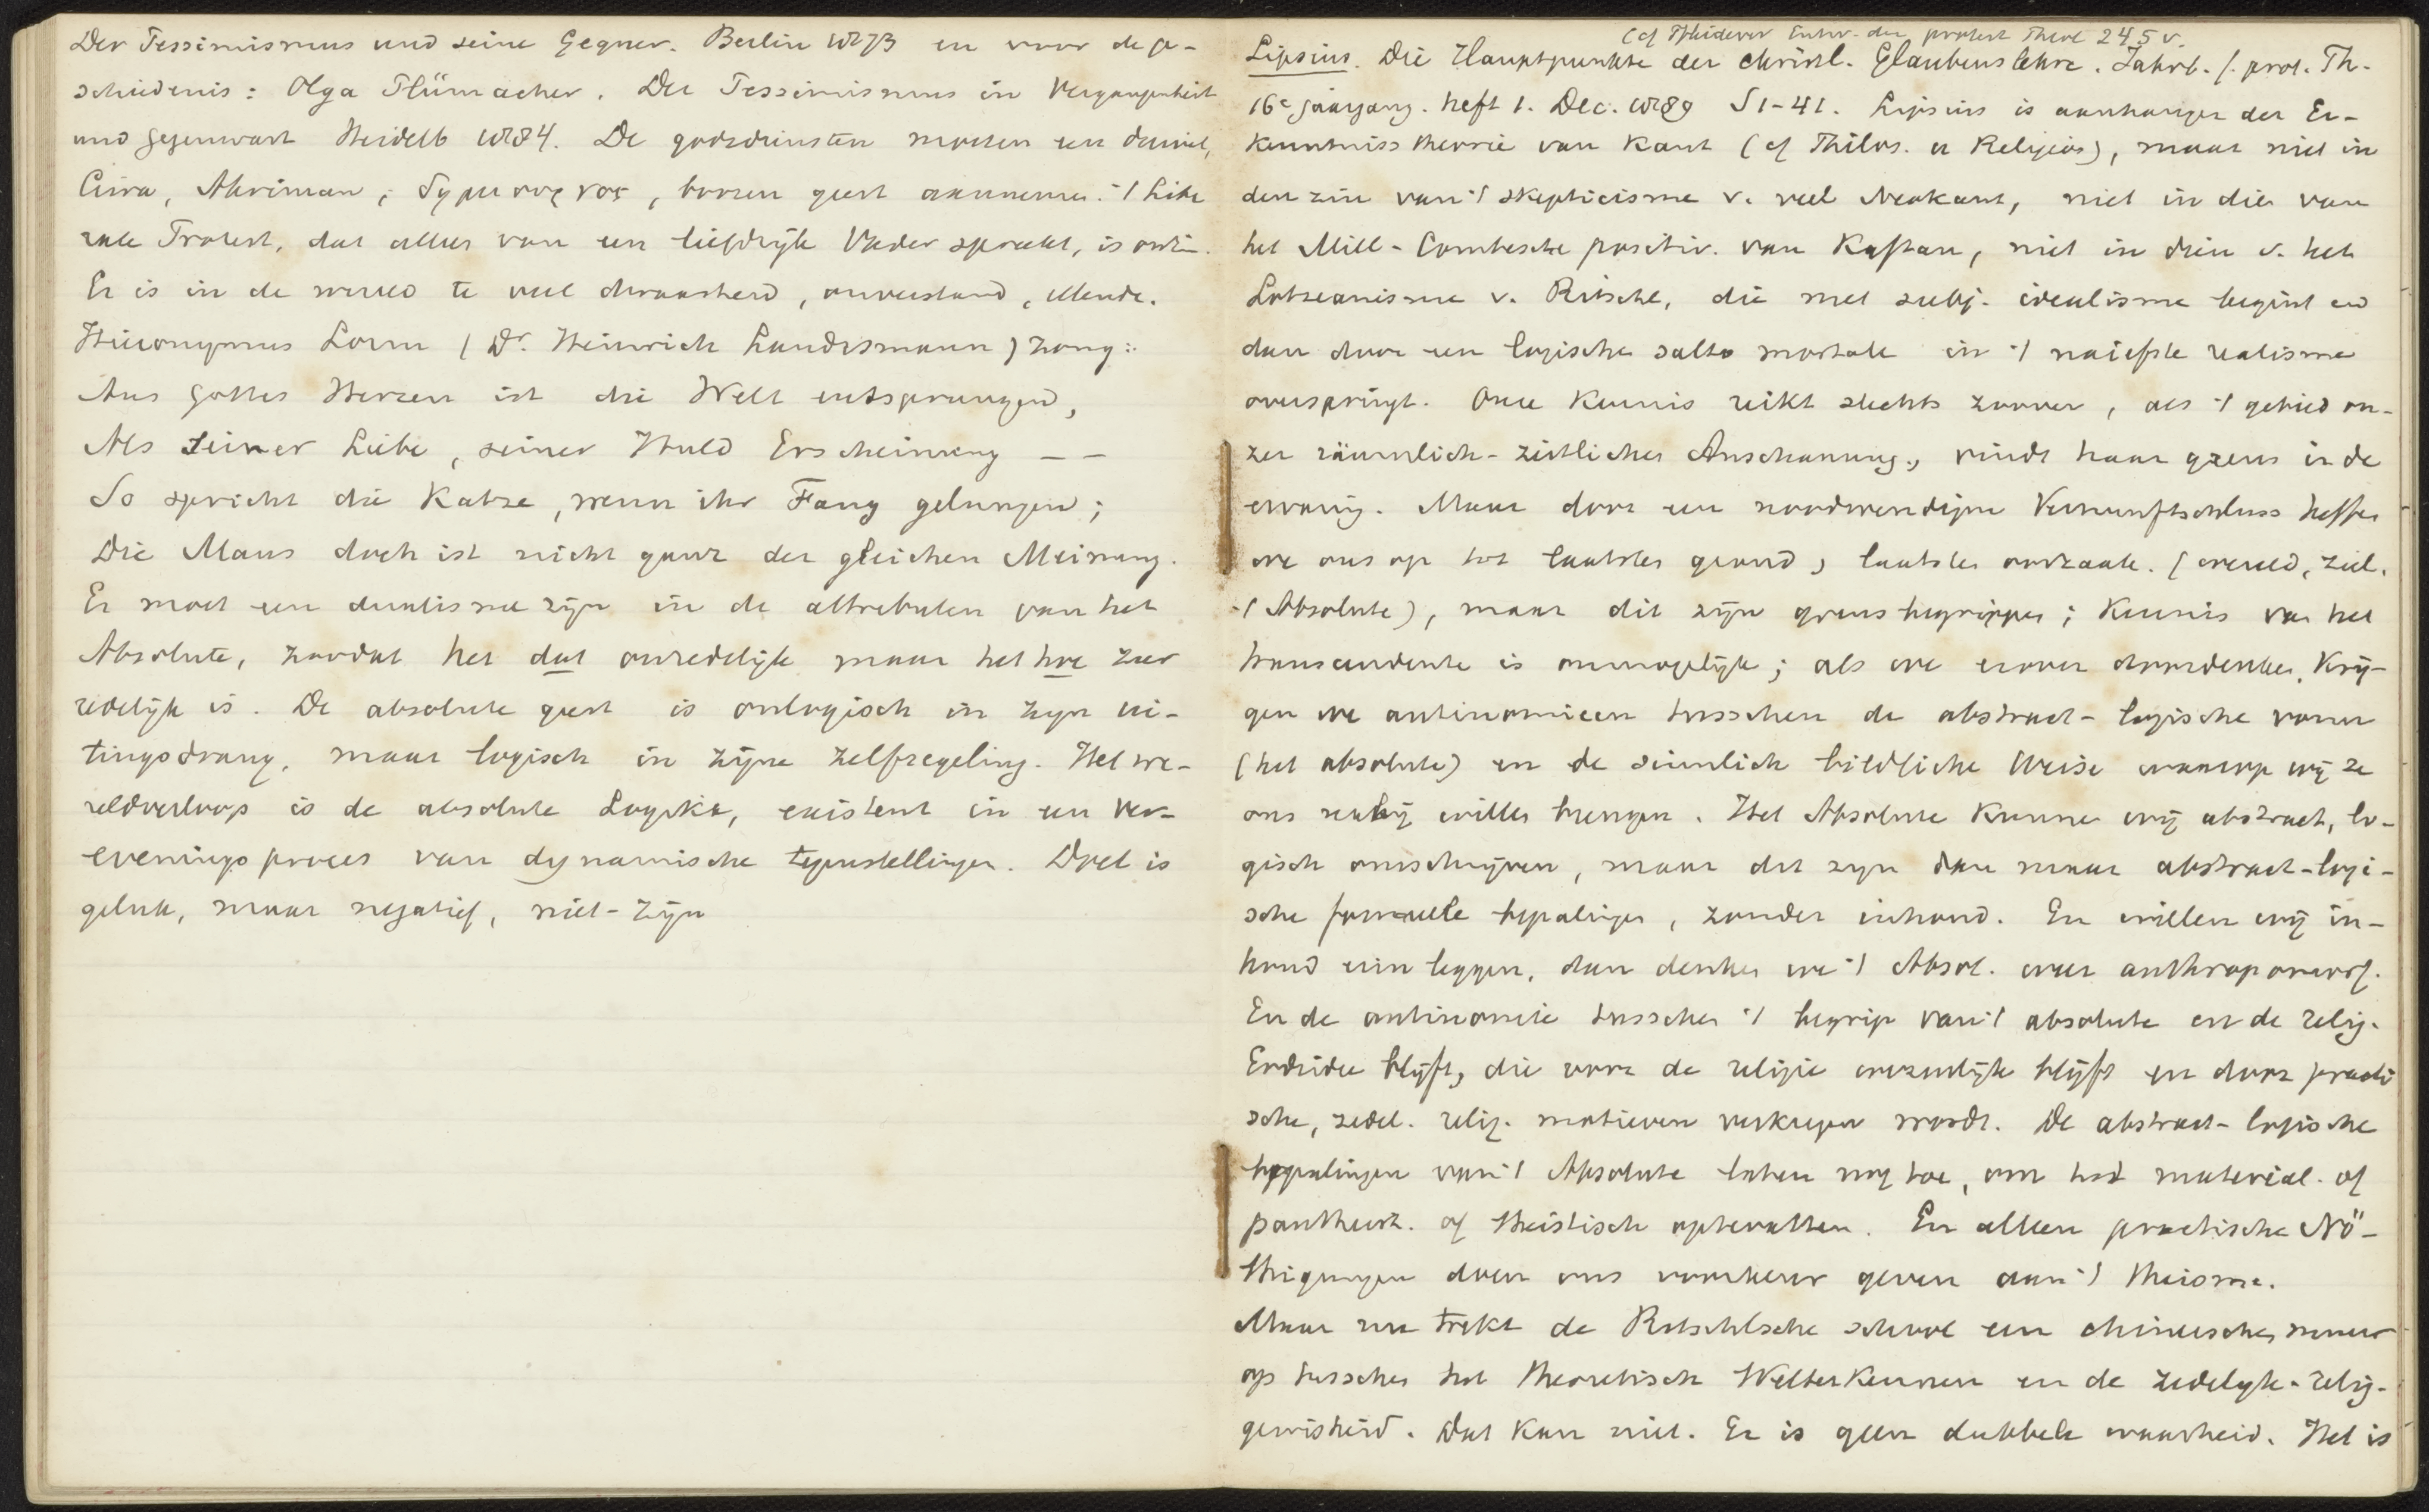 Der Pessimismus und seine Gegner. Berlin 1873 en voor de ge-
schiedenis: Olga Plümacher. Der Pessimismus in Vergangenheit
und Gegenwart Heidelb 1884. De godsdiensten moeten een duivel,
Çiva, Ahriman, boozen geest aannemen. 't libe
rale Protest, dat alles van een liefdrijk Vader spreekt, is onzin.
Er is in de wereld te veel dwaasheid, onverstand, ellende.
Hieronymus Lorm (Dr. Heinrich Landesmann) zong:
Aus Gottes Herzen ist die Welt entsprungen,
Als seiner Liebe, seiner Huld Erscheinung – –
So spricht die Katze, wenn ihr Fang gelungen;
Die Maus doch ist nicht ganz der gleichen Meinung.
Er moet een dualisme zijn in de attributen van het
Absolute, zoodat het dat onredelijk maar het hoe zeer
redelijk is. De absolute geest is onlogisch in zijn ui-
tingsdrang, maar logisch in zijne zelfregeling. Het we-
reldverloop is de absolute Logika, existent in een ver-
evenings proces van dynamische tegenstellingen. Doel is
geluk, maar negatief, niet-zijn
(cf Pfleiderer Entw. der protest Theol 245 v.
Lipsius. Die Hauptpunkte der christl. Glaubenslehre. Jahrb. f. prot. Th.
16e jaargang. heft 1. Dec. 1889 S 1-41. Lipsius is aanhanger der Er-
kenntniss theorie van Kant (cf Philos. u Religion), maar niet in
den zin van 't skepticisme v. veel Neokant, niet in die van
het Mill-Comtesche positiv. van Kaftan, niet in dien v. het
Lotzeanisme v. Ritschl, die met subj. idealisme begint en
dan door een logische salto mortale in 't naiefste realisme
overspringt. Onze kennis reikt slechts zoover, als 't gebied on-
zer räumlich-zeitlicher Anschauung, vindt haar grens in de
ervaring. Maar door een noodwendigen Vernunftschluss heffen
we ons op tot laatsten grond, laatste oorzaak. (wereld, ziel,
't Absolute), maar dit zijn grens begrippen; kennis van het
transcendente is onmogelijk; als we erover doordenken, krij-
gen we antinomieen tusschen de abstract-logische vorm
(het absolute) en de sinnlich bildliche Weise waarop wij ze
ons nabij willen brengen. Het Absolute kunnen wij abstract, lo-
gisch omschrijven, maar dit zijn dan maar abstract-logi-
sche formeele bepalingen, zonder inhoud. En willen wij in-
houd erin leggen, dan denken we 't Absol. weer anthropomorf.
En de antinomie tusschen 't begrip van 't absolute en de relig.
blijft, die voor de religie wezenlijk blijft en door practi
sche, zedel. relig. motieven verkregen wordt. De abstract-logische
bepalingen van 't Absolute laten nog toe, om het material. of
pantheist. of theistisch optevatten. En alleen practische Nö-
thigungen doen ons voorkeur geven aan 't theisme.
Maar nu trekt de Ritschlsche school een chineeschen muur
op tusschen het theoretisch Welterkennen en de zedelijk-relig.
gewisheid. Dat kan niet. Er is geen dubbele waarheid. Het is